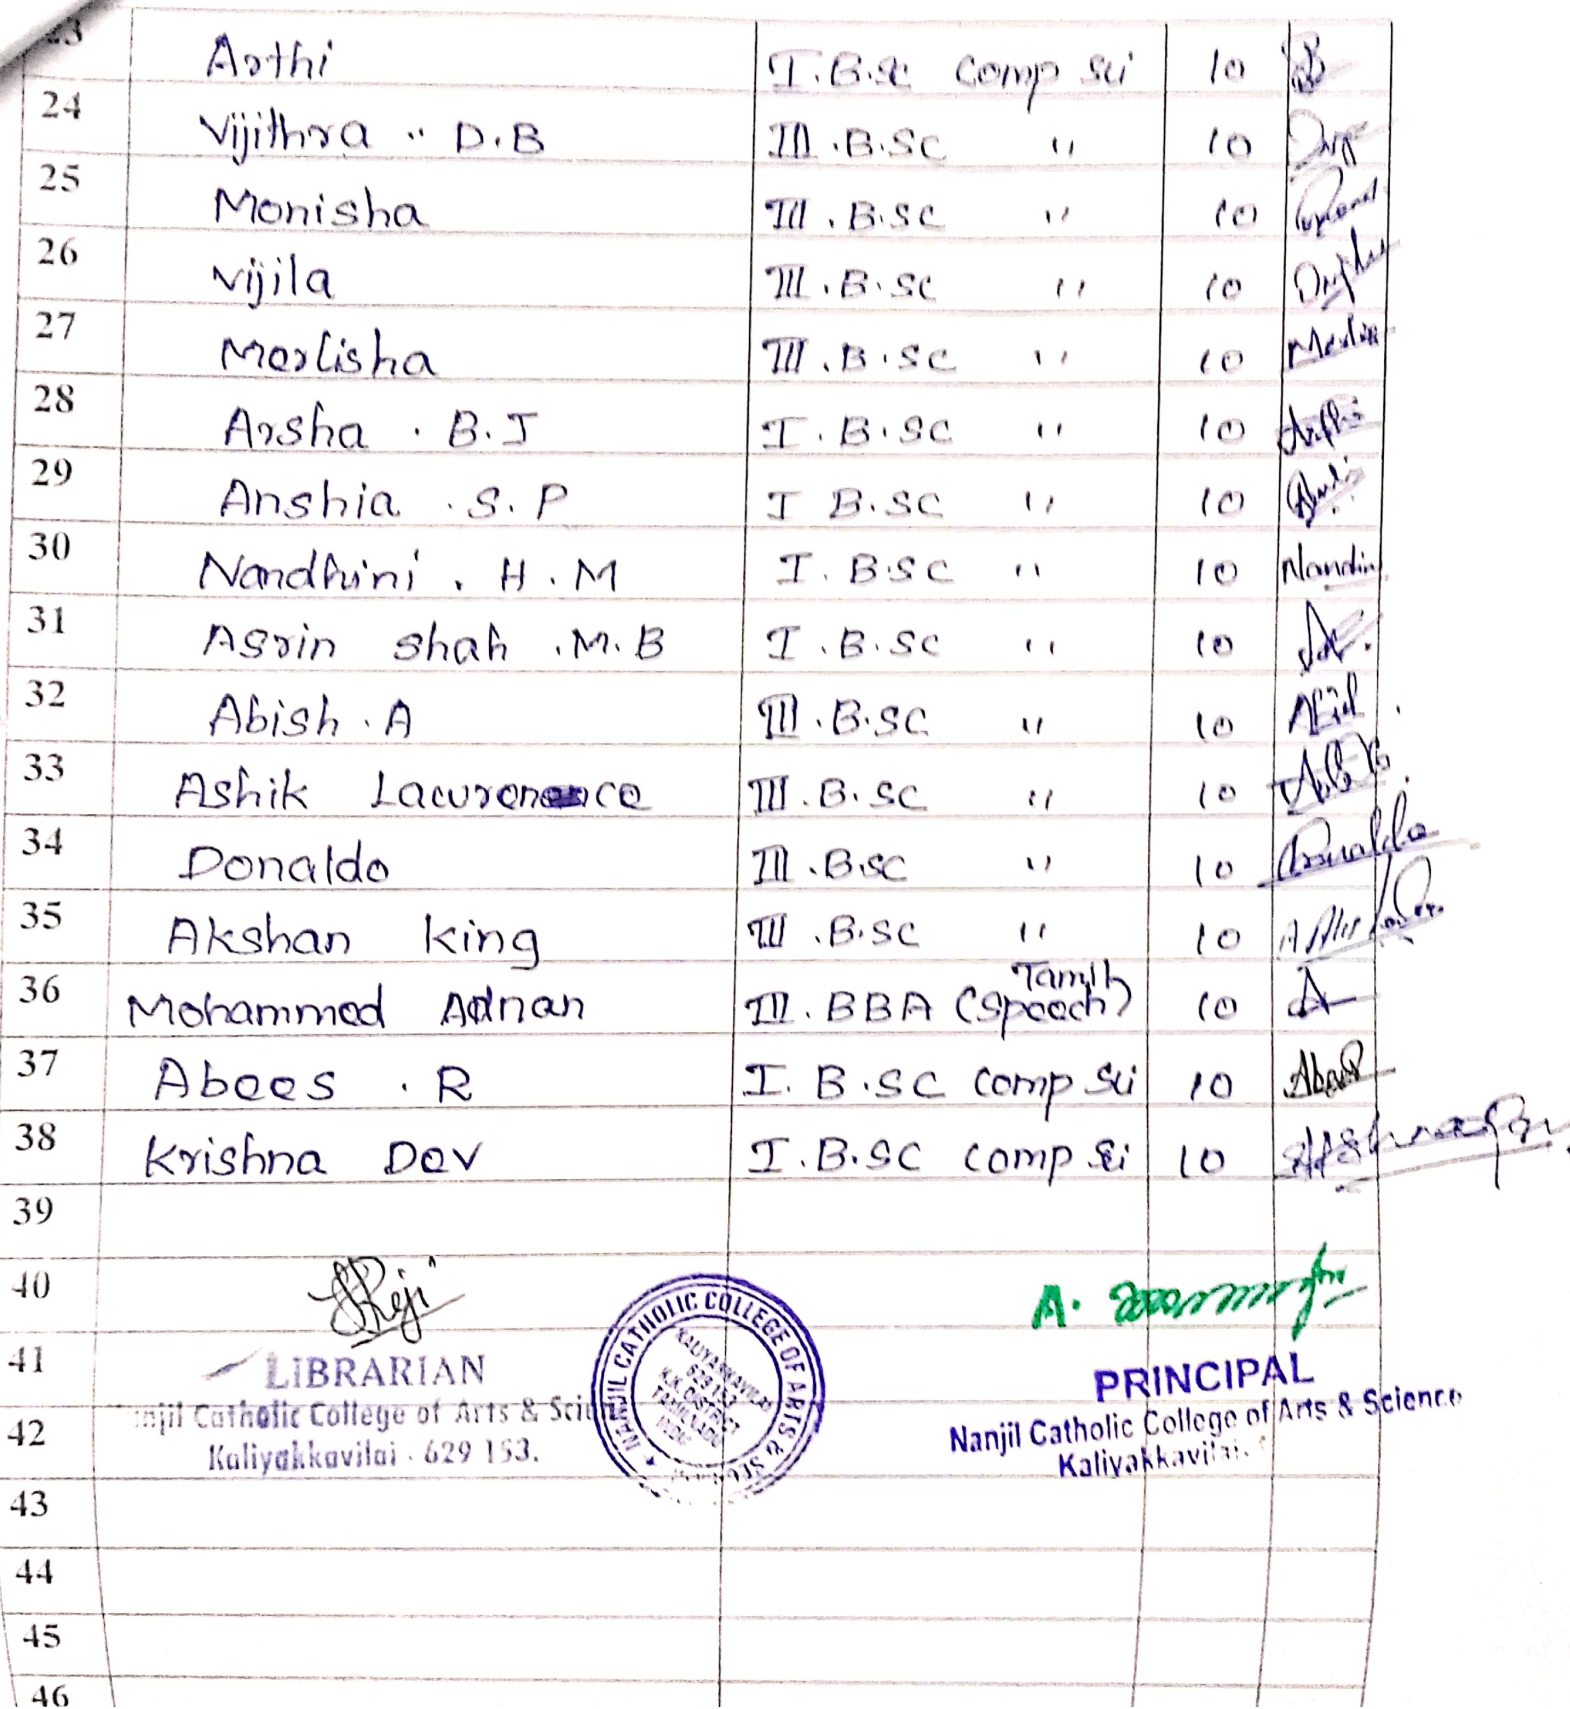 23 Arthi I.B.sc Comp Sci 10
24 Vijithra " D.B III.B.SC " 10
25 Monisha III.B.SC " 10
26 Vijila III.B.SC " 10
27 Merlisha III.B.SC " 10 Merlin
28 Arsha . B.J I.B.SC " 10
29 Anshia . S.P I B.SC " 10
30 Nandhini . H.M I.B.SC " 10 Nandini
31 Asrin shah .M.B I.B.SC " 10
32 Abish . A III.B.SC " 10
33 Ashik Lawrence III.B.SC " 10
34 Donaldo III.B.SC " 10 Donaldo
35 Akshan king III.B.SC " 10
36 Mohammed Adnan III.BBA (Tamil Speech) 10 A
37 Abees . R I.B.SC Comp Sci 10
38 Krishna Dev I.B.SC Comp Sci 10
39
40 Reji A.
41 LIBRARIAN PRINCIPAL
Nanjil Catholic College of Arts & Science
42 Kaliyakkavilai - 629 153.
Nanjil Catholic College of Arts & Science
Kaliyakkavilai.
NANJIL CATHOLIC COLLEGE OF ARTS & SCIENCE
KALIYAKKAVILAI
629 153
K.K. DISTRICT
TAMIL NADU
INDIA
43
44
45
46